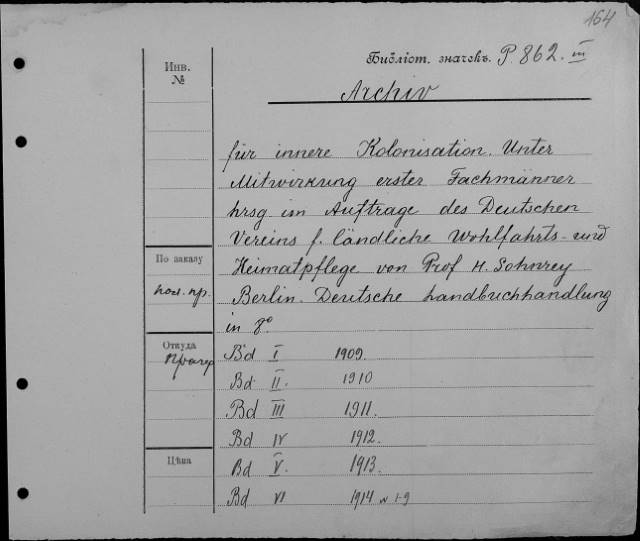 164
Инв.
№
Библіот. значекъ. P. 862. III
Archiv
für innere Kolonisation. Unter
Mitwirkung erster Fachmänner
hrsg im Auftrage des Deutschen
Vereins f. ländliche Wohlfahrts- und
По заказу
Heimatpflege von Prof H. Sohnrey
Berlin. Deutsche Landbuchhandlung
in 8°
Откуда
Bd I 1909.
Bd II. 1910
Bd III 1911.
Bd IV 1912.
Цѣна
Bd V. 1913.
Bd VI 1914 N 1-9